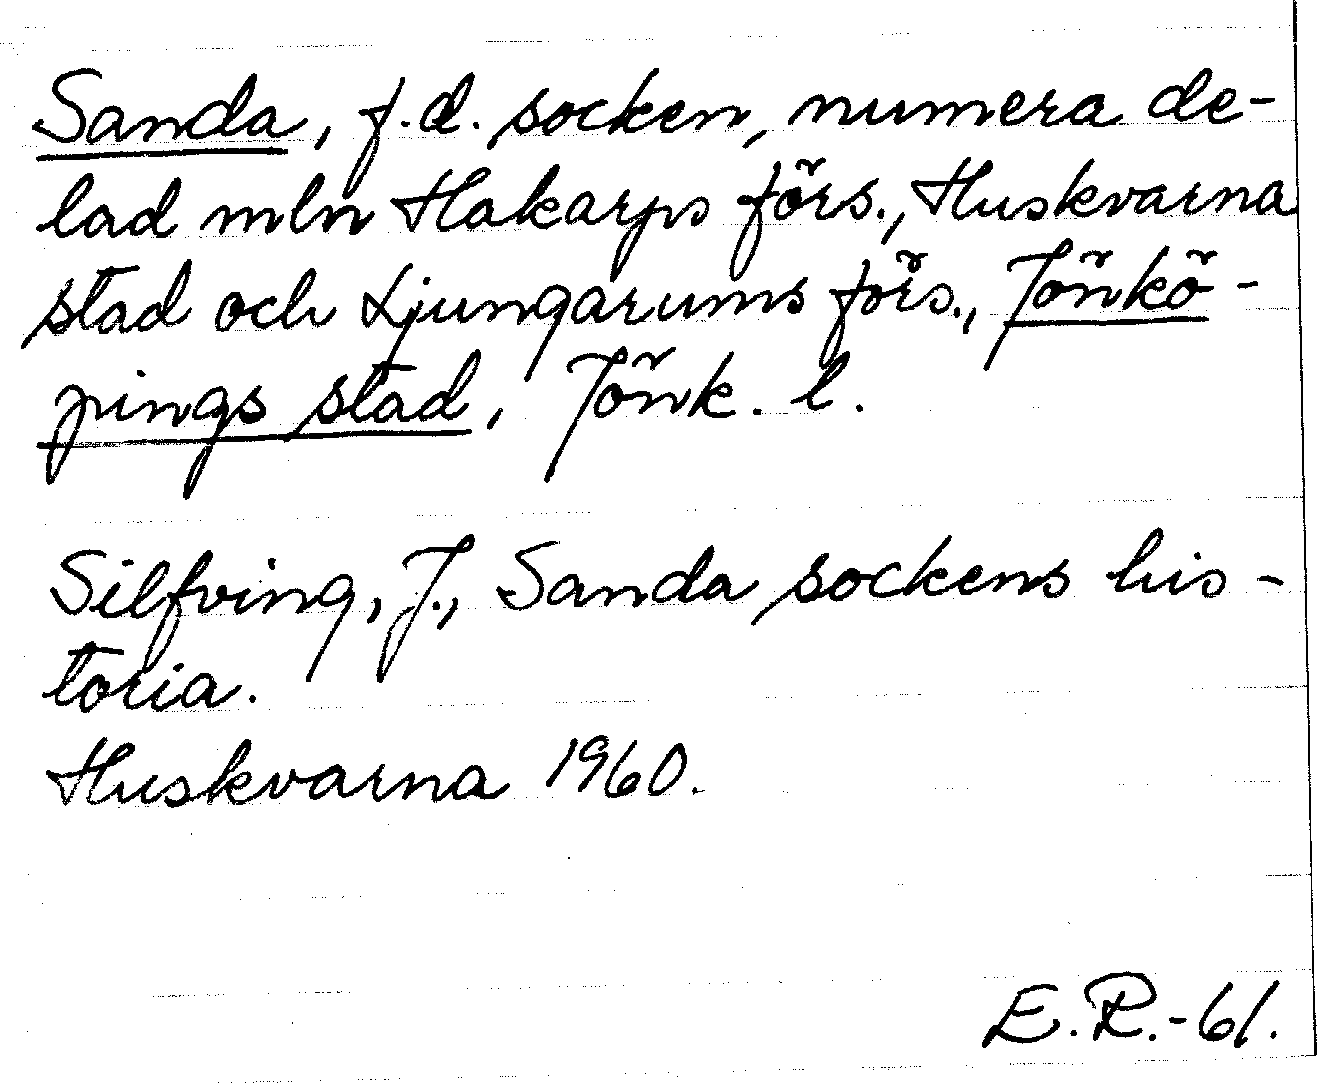 Sanda, f.d. socken, numera de-
lad mln Hakarps förs., Huskvarna
stad och Ljungarums förs., Jönkö-
pings stad, Jönk. l.
Silfving, J., Sanda sockens his-
toria.
Huskvarna 1960.
E.R.-61.